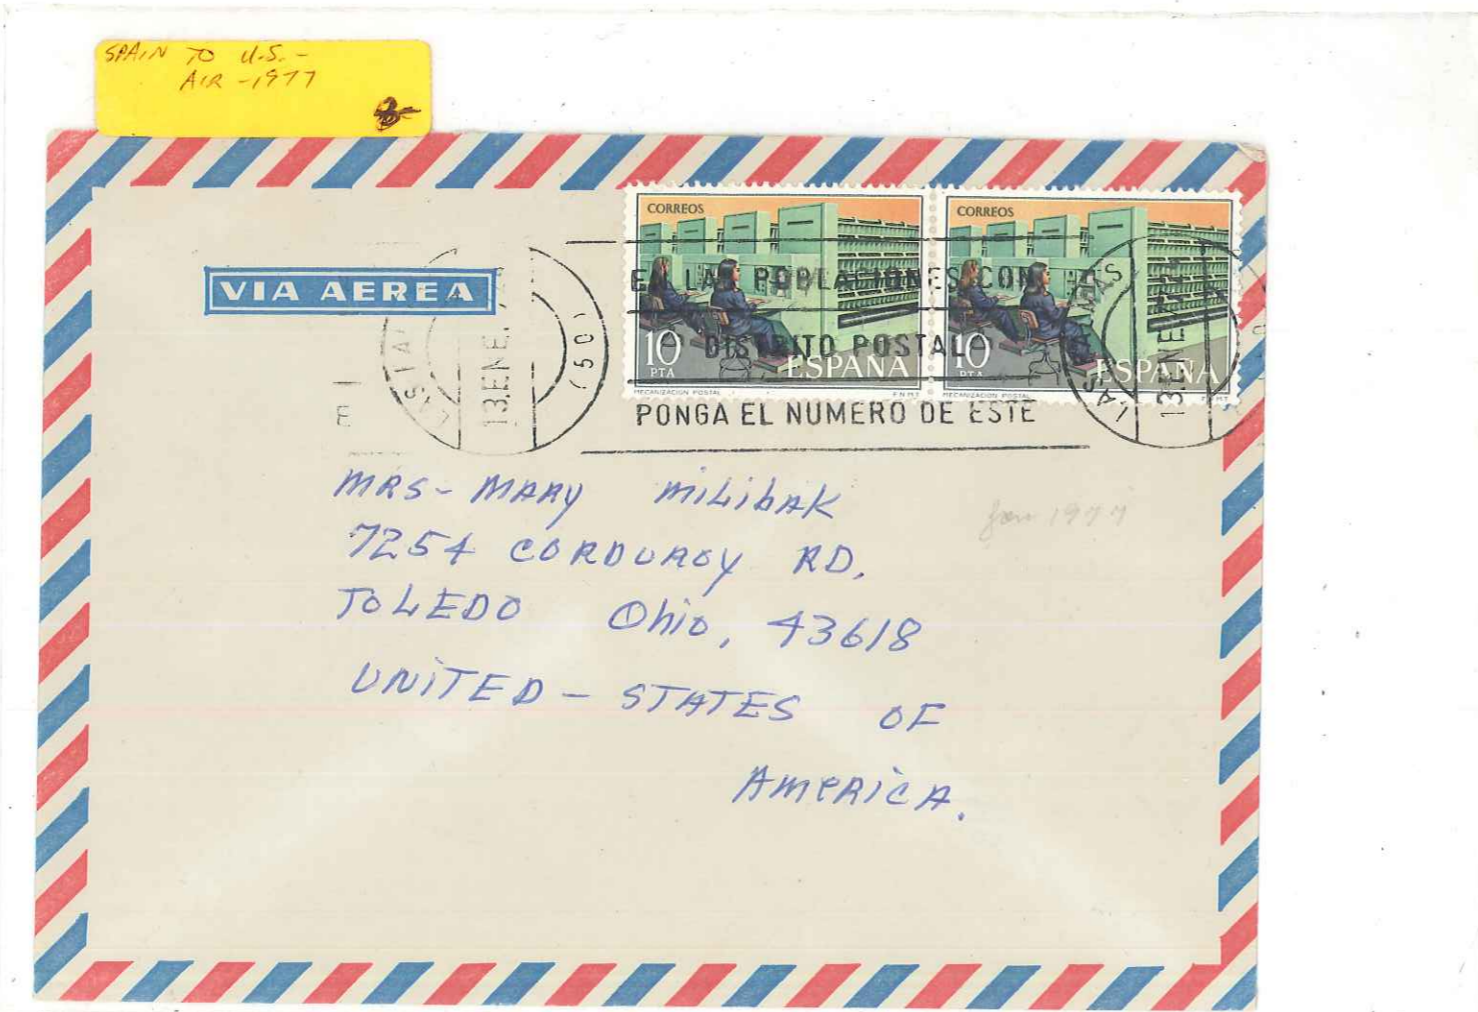 SPAIN TO U.S. -
AIR - 1977
3-
VIA AEREA
CORREOS
10
PTA
ESPAÑA
MECANIZACION POSTAL
F.N.M.T.
CORREOS
10
PTA
ESPAÑA
MECANIZACION POSTAL
F.N.M.T.
13.ENE.
(50)
LAS POBLACIONES CON
DISTRITO POSTAL
PONGA EL NUMERO DE ESTE
13.ENE
MRS - MARY MILIBAK
Jan 1977
7254 CORDUROY RD.
TOLEDO Ohio, 43618
UNiTED - STATES OF
AMeRiCA.